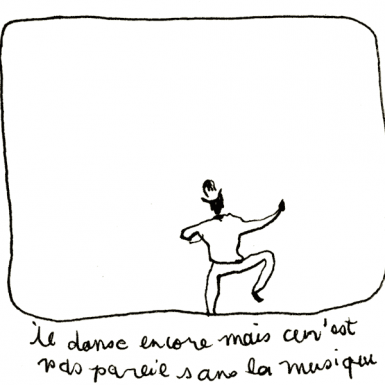 il danse encore mais ce n'est
pas pareil sans la musique